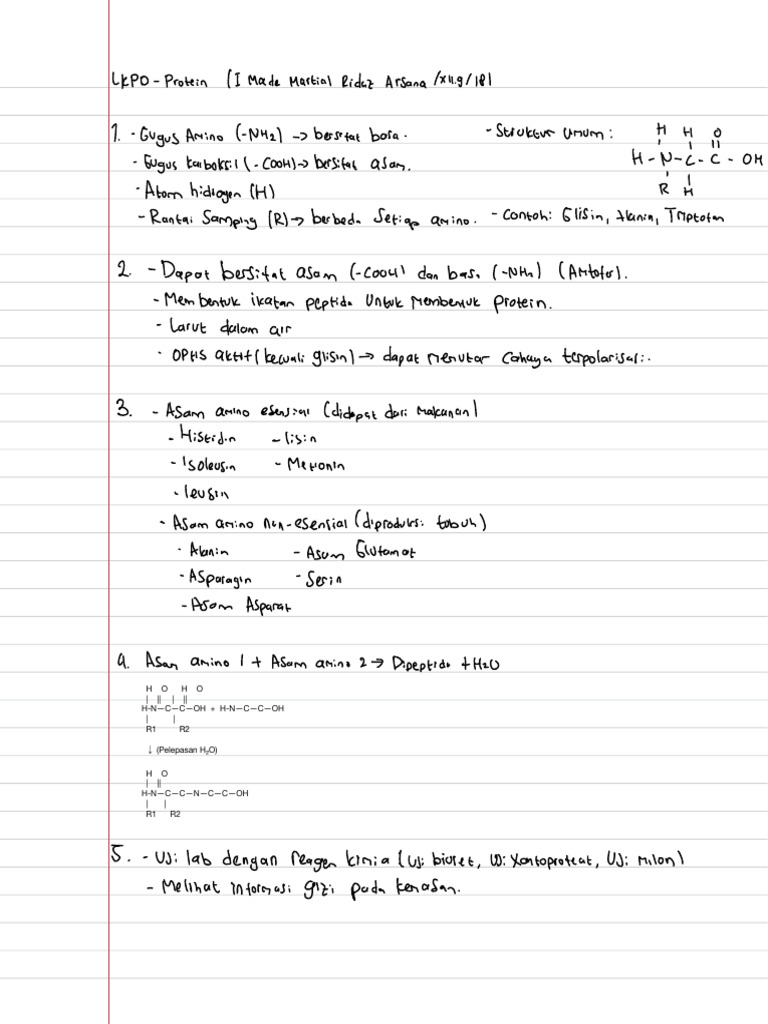 LKPD - Protein (I Made Martial Ridaz Arsana /XII.9/18)
1. - Gugus Amino (-NH2) → bersifat basa.
- Struktur Umum:
H H O
H - N - C - C - OH
R H
- Gugus karboksil (-COOH) → bersifat asam.
- Atom hidrogen (H)
- Rantai Samping (R) → berbeda setiap amino.
- Contoh: Glisin, Alanin, Triptofan
2. - Dapat bersifat asam (-COOH) dan basa (-NH2) (Amfoter).
- Membentuk ikatan peptida untuk membentuk protein.
- Larut dalam air
- Optis aktif (kecuali glisin) → dapat memutar cahaya terpolarisasi.
3. - Asam amino esensial (didapat dari makanan)
- Histidin - lisin
- Isoleusin - Metionin
- leusin
- Asam amino non-esensial (diproduksi tubuh)
- Alanin - Asam Glutamat
- Asparagin - Serin
- Asam Aspartat
4. Asam amino 1 + Asam amino 2 → Dipeptida + H2O
H O H O
H-N—C—C—OH + H-N—C—C—OH
R1 R2
↓ (Pelepasan H₂O)
H O
H-N—C—C—N—C—C—OH
R1 R2
5. - Uji lab dengan reagen kimia (Uji biuret, Uji Xantoproteat, Uji Milon)
- Melihat informasi gizi pada kemasan.